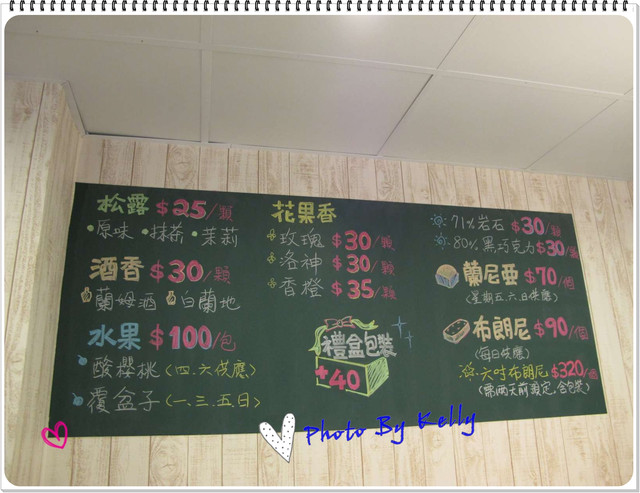 松露 $25/顆
•原味 •抹茶 •茉莉
酒香 $30/顆
蘭姆酒 白蘭地
水果 $100/包
酸櫻桃(四.六供應)
覆盆子(一.三.五.日)
花果香
玫瑰 $30/顆
洛神 $30/顆
香橙 $35/顆
禮盒包裝
+40
71%岩石 $30/顆
80%黑巧克力 $30/顆
蘭尼亞 $70/個
(星期五.六.日供應)
布朗尼 $90/個
(每日供應)
六吋布朗尼 $320/個
(需兩天前預定,含包裝)
Photo By Kelly